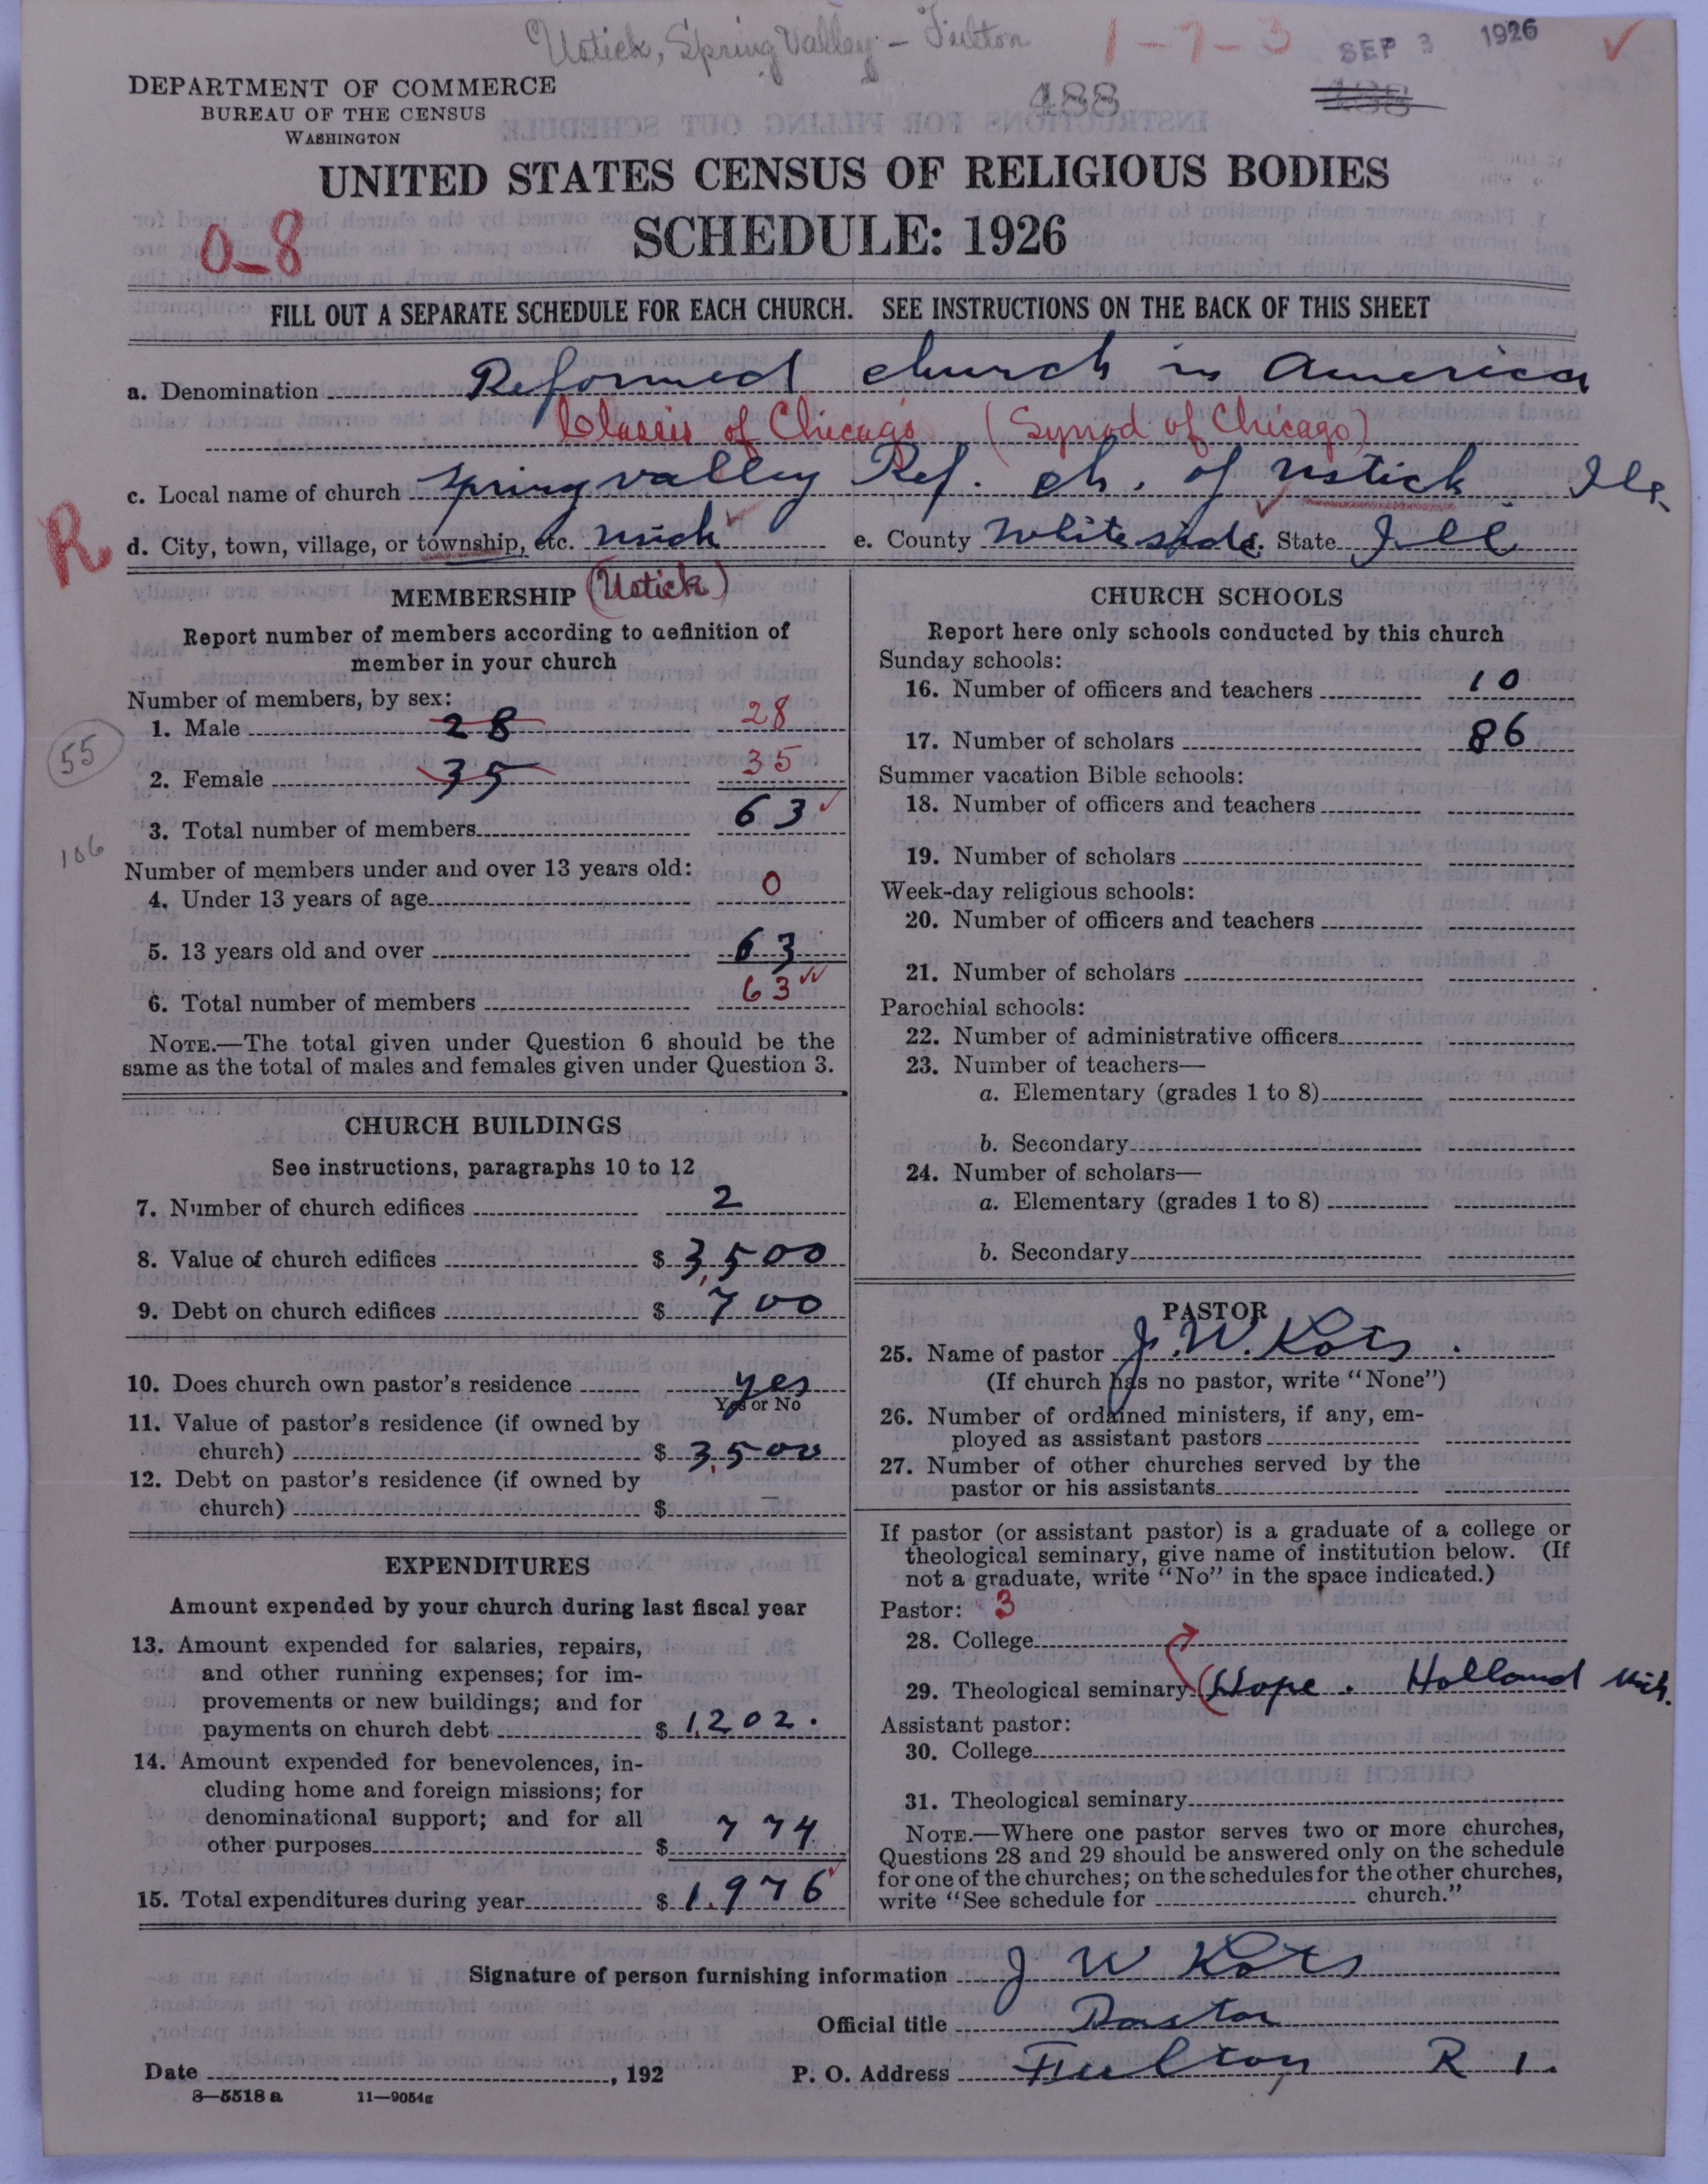 Ustick, Spring Valley - Fulton
1-7-3
SEP 3 1926
DEPARTMENT OF COMMERCE
BUREAU OF THE CENSUS
WASHINGTON
488
488
UNITED STATES CENSUS OF RELIGIOUS BODIES
SCHEDULE: 1926
0-8
FILL OUT A SEPARATE SCHEDULE FOR EACH CHURCH. SEE INSTRUCTIONS ON THE BACK OF THIS SHEET
a. Denomination Reformed church in America
Classis of Chicago (Synod of Chicago)
c. Local name of church Spring valley Ref. ch. of Ustick Ills.
R
d. City, town, village, or township, etc. Ustick e. County Whiteside f. State Ill
MEMBERSHIP (Ustick)
Report number of members according to definition of
member in your church
Number of members, by sex:
1. Male 28 28
55
2. Female 35 35
3. Total number of members 63
106
Number of members under and over 13 years old:
4. Under 13 years of age 0
5. 13 years old and over 63
6. Total number of members 63
NOTE.—The total given under Question 6 should be the
same as the total of males and females given under Question 3.
CHURCH BUILDINGS
See instructions, paragraphs 10 to 12
7. Number of church edifices 2
8. Value of church edifices $ 3,500
9. Debt on church edifices $ 700
10. Does church own pastor's residence yes
Yes or No
11. Value of pastor's residence (if owned by
church) $ 3,500
12. Debt on pastor's residence (if owned by
church) $ —
EXPENDITURES
Amount expended by your church during last fiscal year
13. Amount expended for salaries, repairs,
and other running expenses; for im-
provements or new buildings; and for
payments on church debt $ 1,202.
14. Amount expended for benevolences, in-
cluding home and foreign missions; for
denominational support; and for all
other purposes $ 774
15. Total expenditures during year $ 1,976
CHURCH SCHOOLS
Report here only schools conducted by this church
Sunday schools:
16. Number of officers and teachers 10
17. Number of scholars 86
Summer vacation Bible schools:
18. Number of officers and teachers
19. Number of scholars
Week-day religious schools:
20. Number of officers and teachers
21. Number of scholars
Parochial schools:
22. Number of administrative officers
23. Number of teachers—
a. Elementary (grades 1 to 8)
b. Secondary
24. Number of scholars—
a. Elementary (grades 1 to 8)
b. Secondary
PASTOR
25. Name of pastor J. W. Kots.
(If church has no pastor, write "None")
26. Number of ordained ministers, if any, em-
ployed as assistant pastors
27. Number of other churches served by the
pastor or his assistants
If pastor (or assistant pastor) is a graduate of a college or
theological seminary, give name of institution below. (If
not a graduate, write "No" in the space indicated.)
Pastor: 3
28. College
29. Theological seminary (Hope. Holland Mich.
Assistant pastor:
30. College
31. Theological seminary
NOTE.—Where one pastor serves two or more churches,
Questions 28 and 29 should be answered only on the schedule
for one of the churches; on the schedules for the other churches,
write "See schedule for church."
Signature of person furnishing information J W Kots
Official title Pastor
Date , 192 P. O. Address Fulton R 1.
8—5518 a 11—9054g